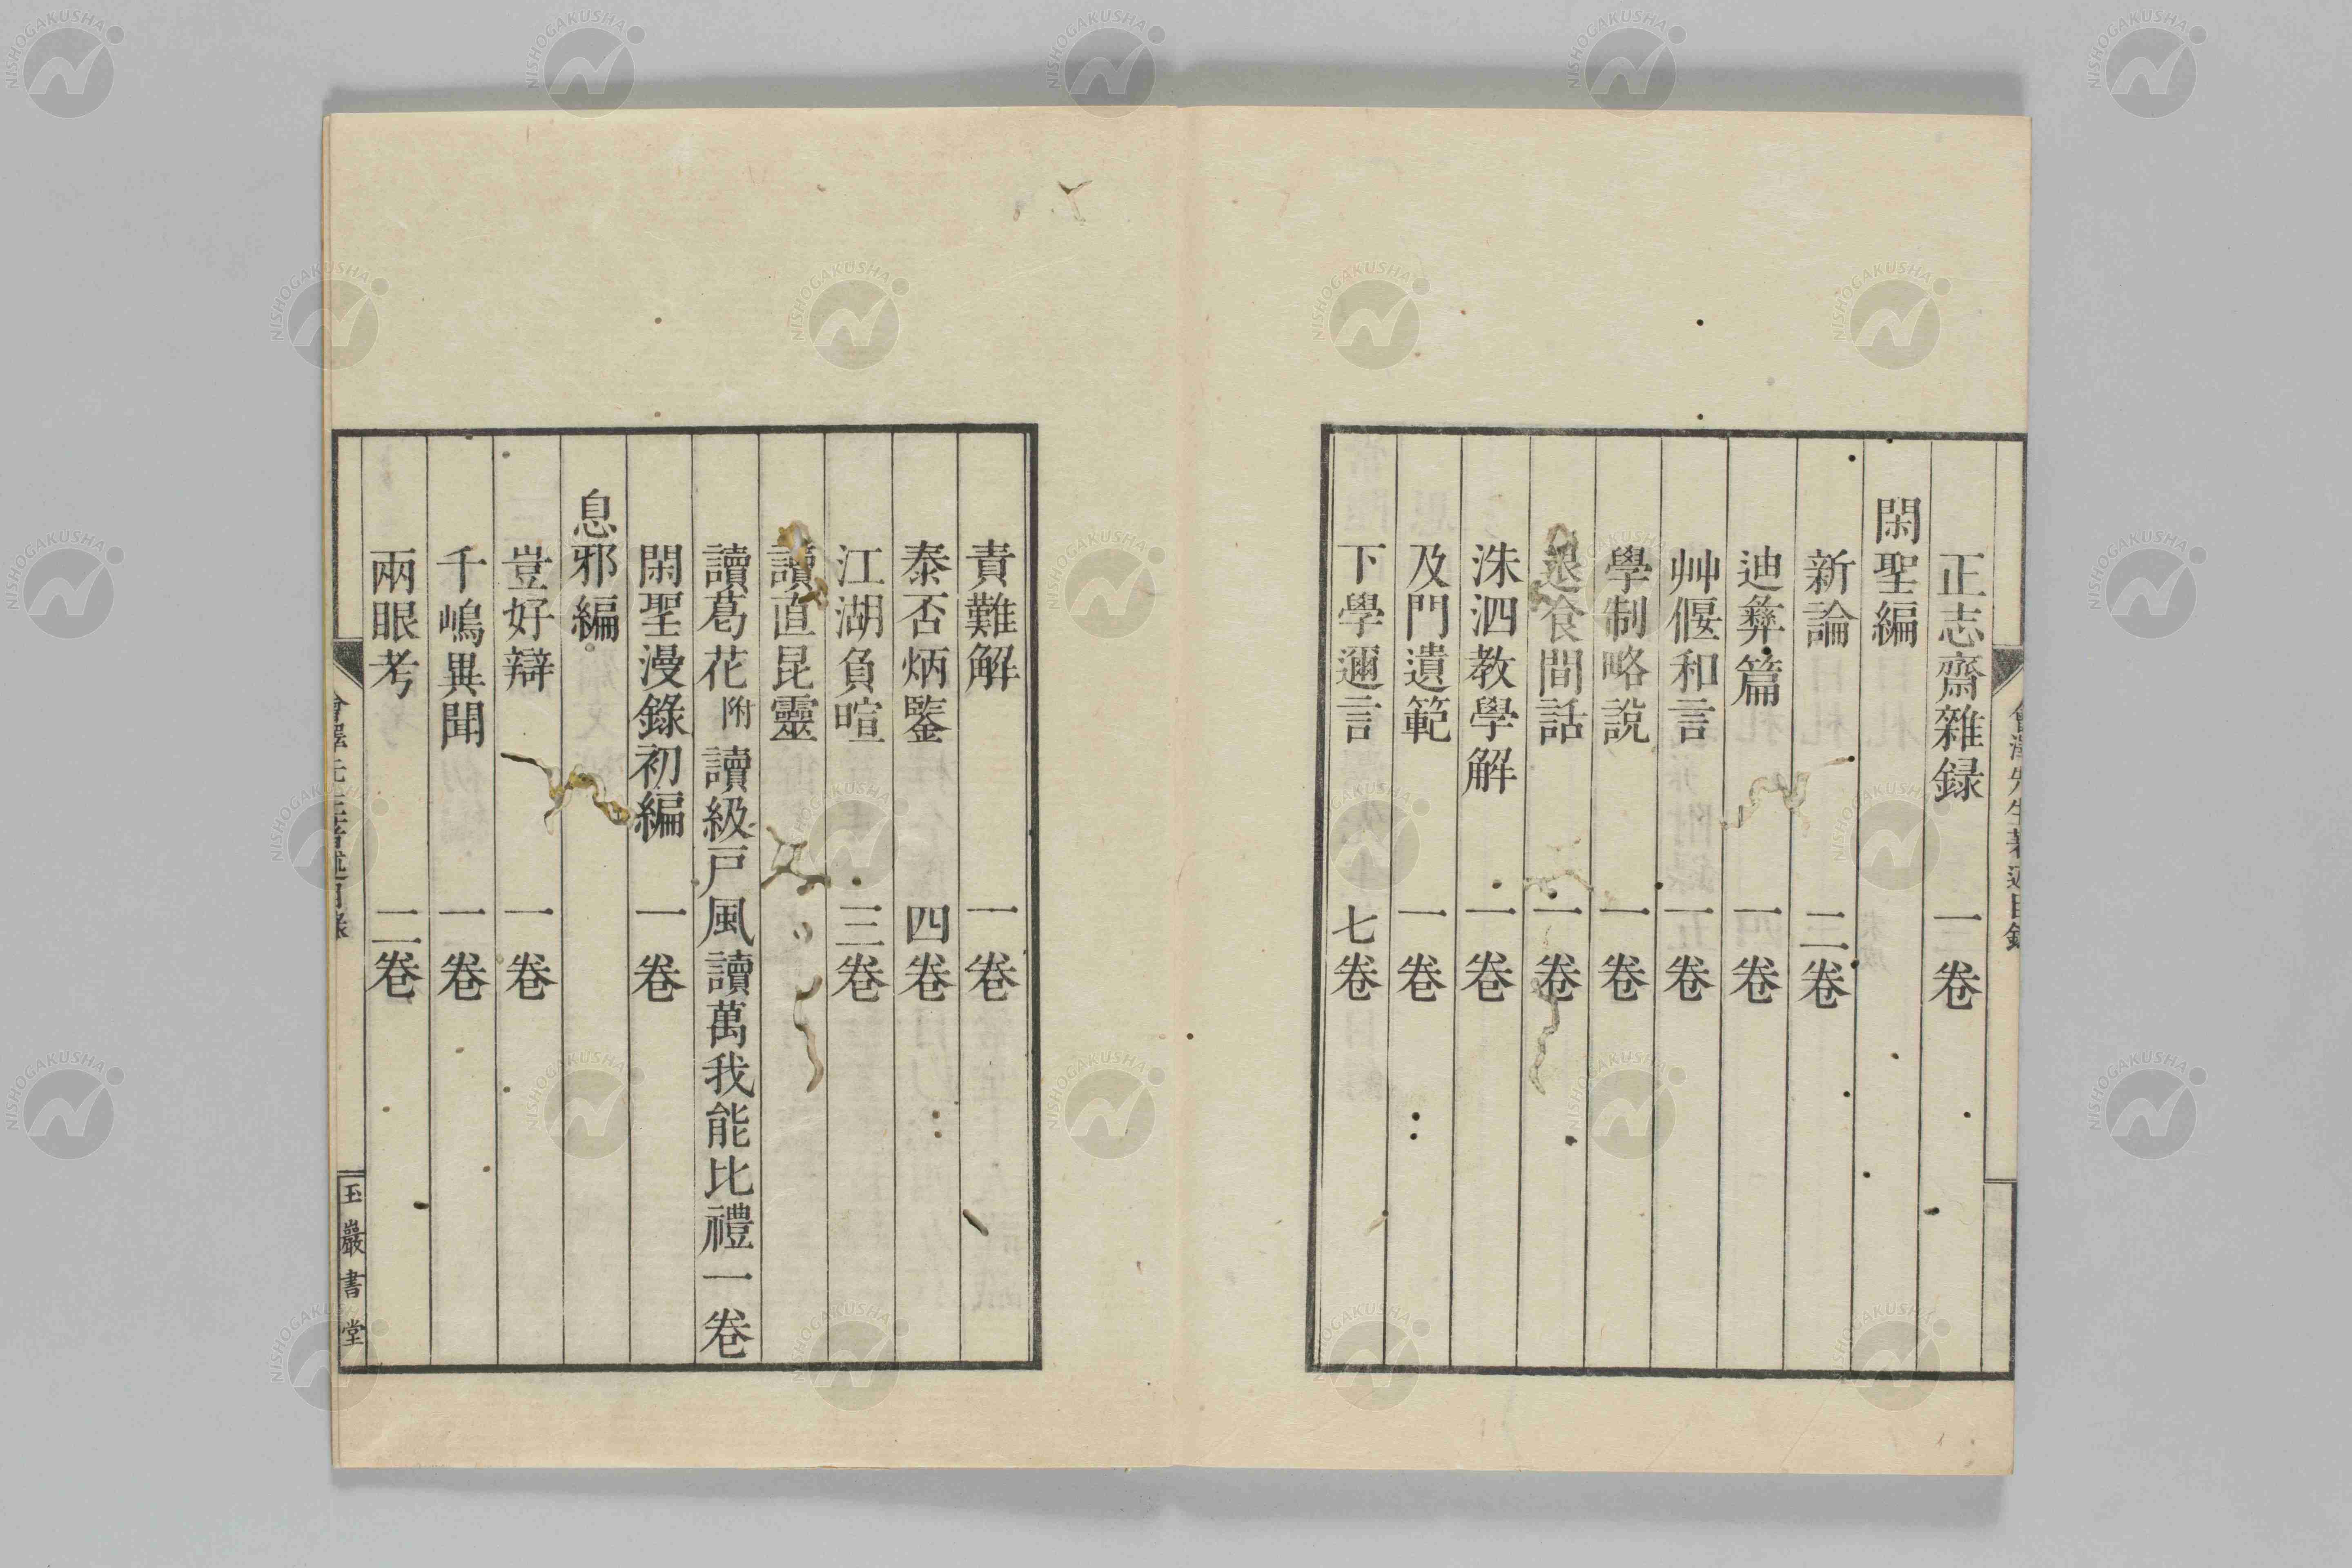 正志齋雜録 一卷
閑聖編
新論 二卷
迪彝篇 一卷
艸偃和言 一卷
學制略説 一卷
退食間話 一卷
洙泗教學解 一卷
及門遺範 一卷
下學邇言 七卷
責難解 一卷
泰否炳鑒 四卷
江湖負暄 三卷
讀直毘靈
讀葛花 附 讀級戸風讀萬我能比禮一卷
閑聖漫錄初編 一卷
息邪編
豈好辯 一卷
千嶋異聞 一卷
兩眼考 二卷
會澤先生著述目錄
玉巖書堂
NISHOGAKUSHA